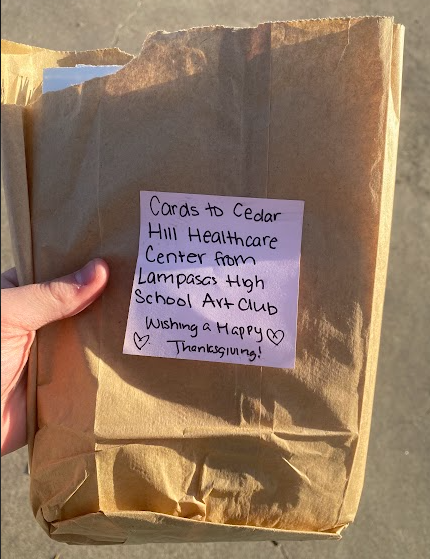 Cards to Cedar
Hill Healthcare
Center from
Lampasas High
School Art Club
Wishing a Happy
Thanksgiving!